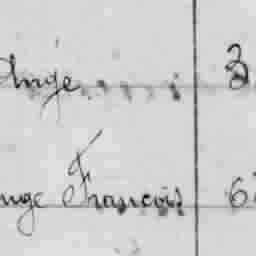 Ange 3
nge François 6